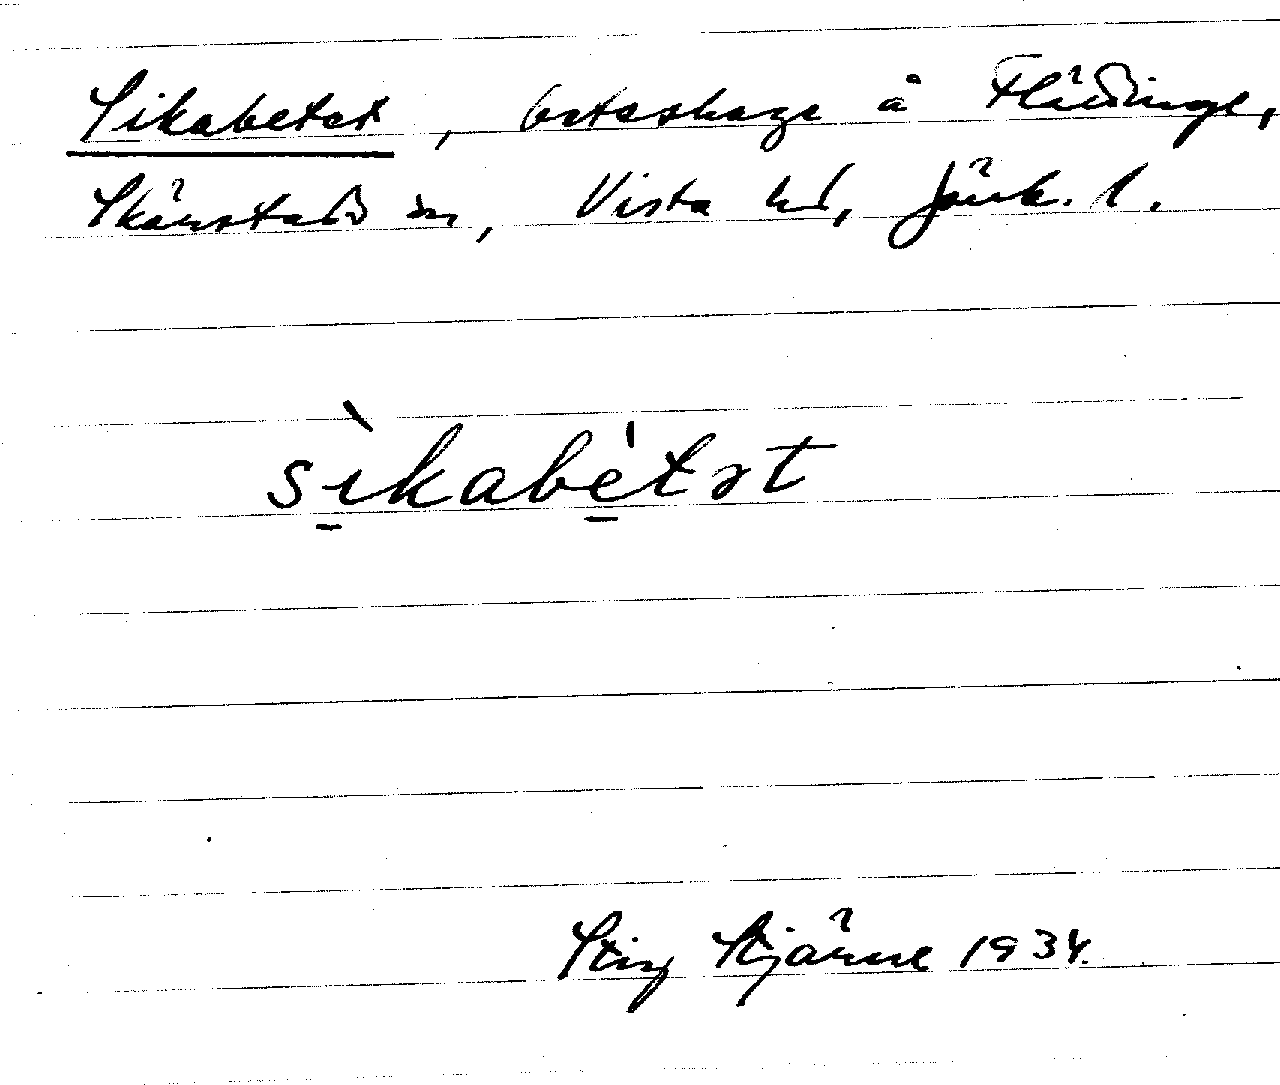 Sikabetet, beteshage å Flädinge,
Skärstads sn, Vista hd, Jönk. l.
sìkabétət
Stig Stjärne 1934.